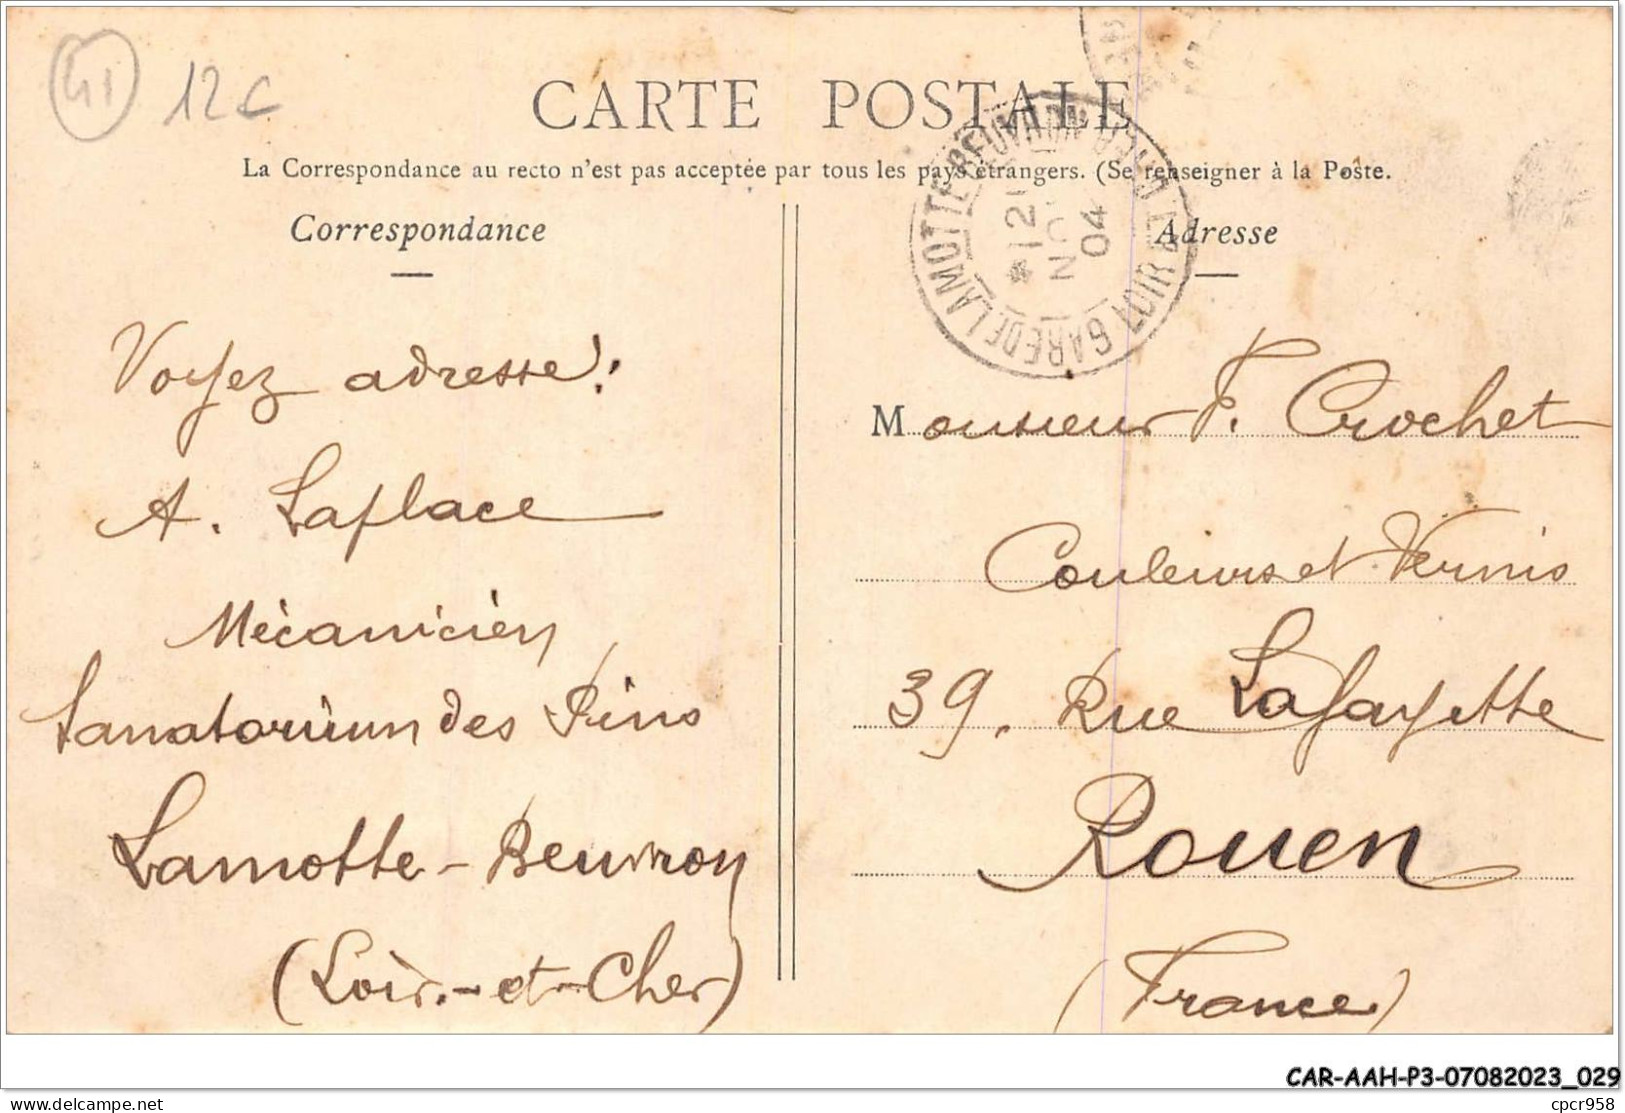 41
12c
CARTE POSTALE
La Correspondance au recto n'est pas acceptée par tous les pays étrangers. (Se renseigner à la Poste.
Correspondance
Adresse
GARE DE LAMOTTE-BEUVRON LOIR
*12
04
Voyez adresse!
A. Laplace
Mécanicien
Sanatorium des Pins
Lamotte-Beuvron
(Loir-et-Cher)
Monsieur F. Crochet
Couleurs et Vernis
39, Rue Lafayette
Rouen
(France)
CAR-AAH-P3-07082023_029
delcampe.net
cpcr958